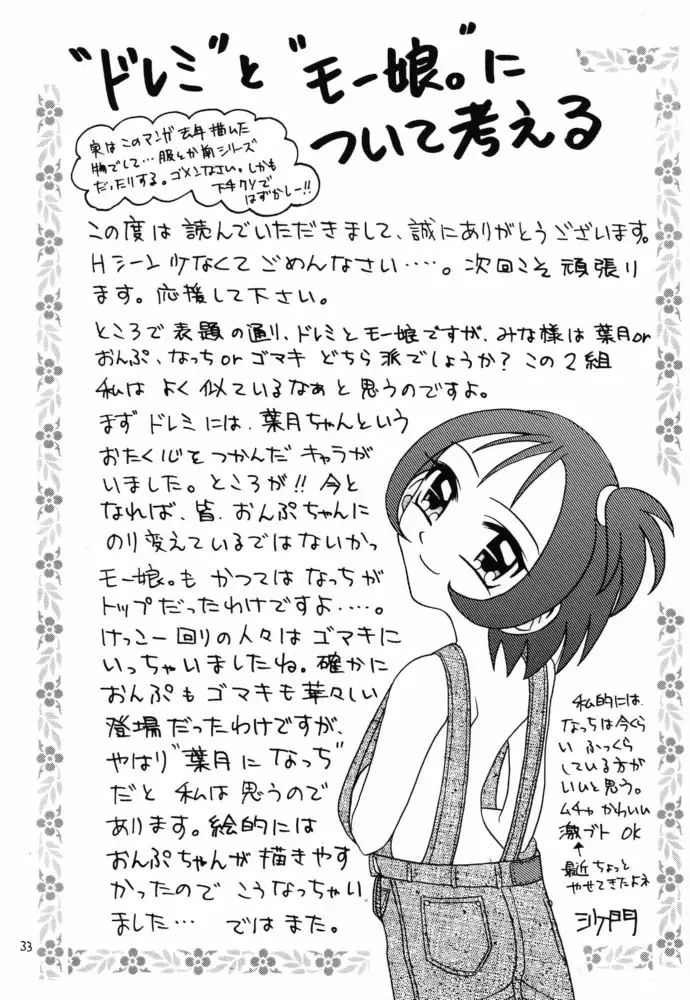 "ドレミ"と"モー娘。"に
ついて考える
実はこのマンガ去年描いた
物でして…服とか前シリーズ
だったりする。ゴメンなさい。しかも
下手クソで
はずかしー!!
この度は読んでいただきまして、誠にありがとうございます。
Hシーン少なくてごめんなさい……。次回こそ頑張り
ます。応援して下さい。
ところで表題の通り、ドレミとモー娘ですが、みな様は葉月or
おんぷ、なっちorゴマキ どちら派でしょうか?この2組
私は よく似ているなぁと思うのですよ。
まず ドレミには、葉月ちゃんという
おたく心をつかんだキャラが
いました。ところが!!今と
なれば、皆、おんぷちゃんに
のり変えているではないかっ
モー娘。も かつては なっちが
トップだったわけですよ……。
けっこー回りの人々はゴマキに
いっちゃいましたね。確かに
おんぷもゴマキも華々しい
登場だったわけですが、
やはり"葉月になっち"
だと 私は思うので
あります。絵的には
おんぷちゃんが描きやす
かったので こうなっちゃい
ました… ではまた。
私的には、
なっちは今くら
い ふっくら
している方が
いいと思う。
ムチャ かわいい
激ブト OK
↑
最近 ちょっと
やせてきたよネ
沙門
33